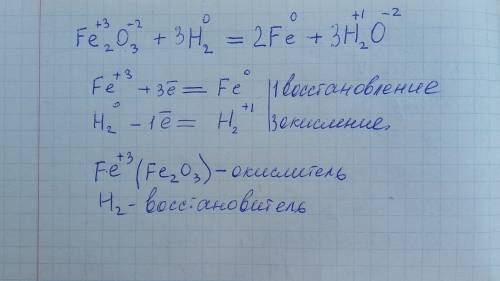 Fe₂⁺³O₃⁻² + 3H₂⁰ = 2Fe⁰ + 3H₂⁺¹O⁻²
Fe⁺³ + 3ē = Fe⁰ | 1 восстановление
H₂⁰ - 1ē = H₂⁺¹ | 3 окисление.
Fe⁺³ (Fe₂O₃) - окислитель
H₂ - восстовитель